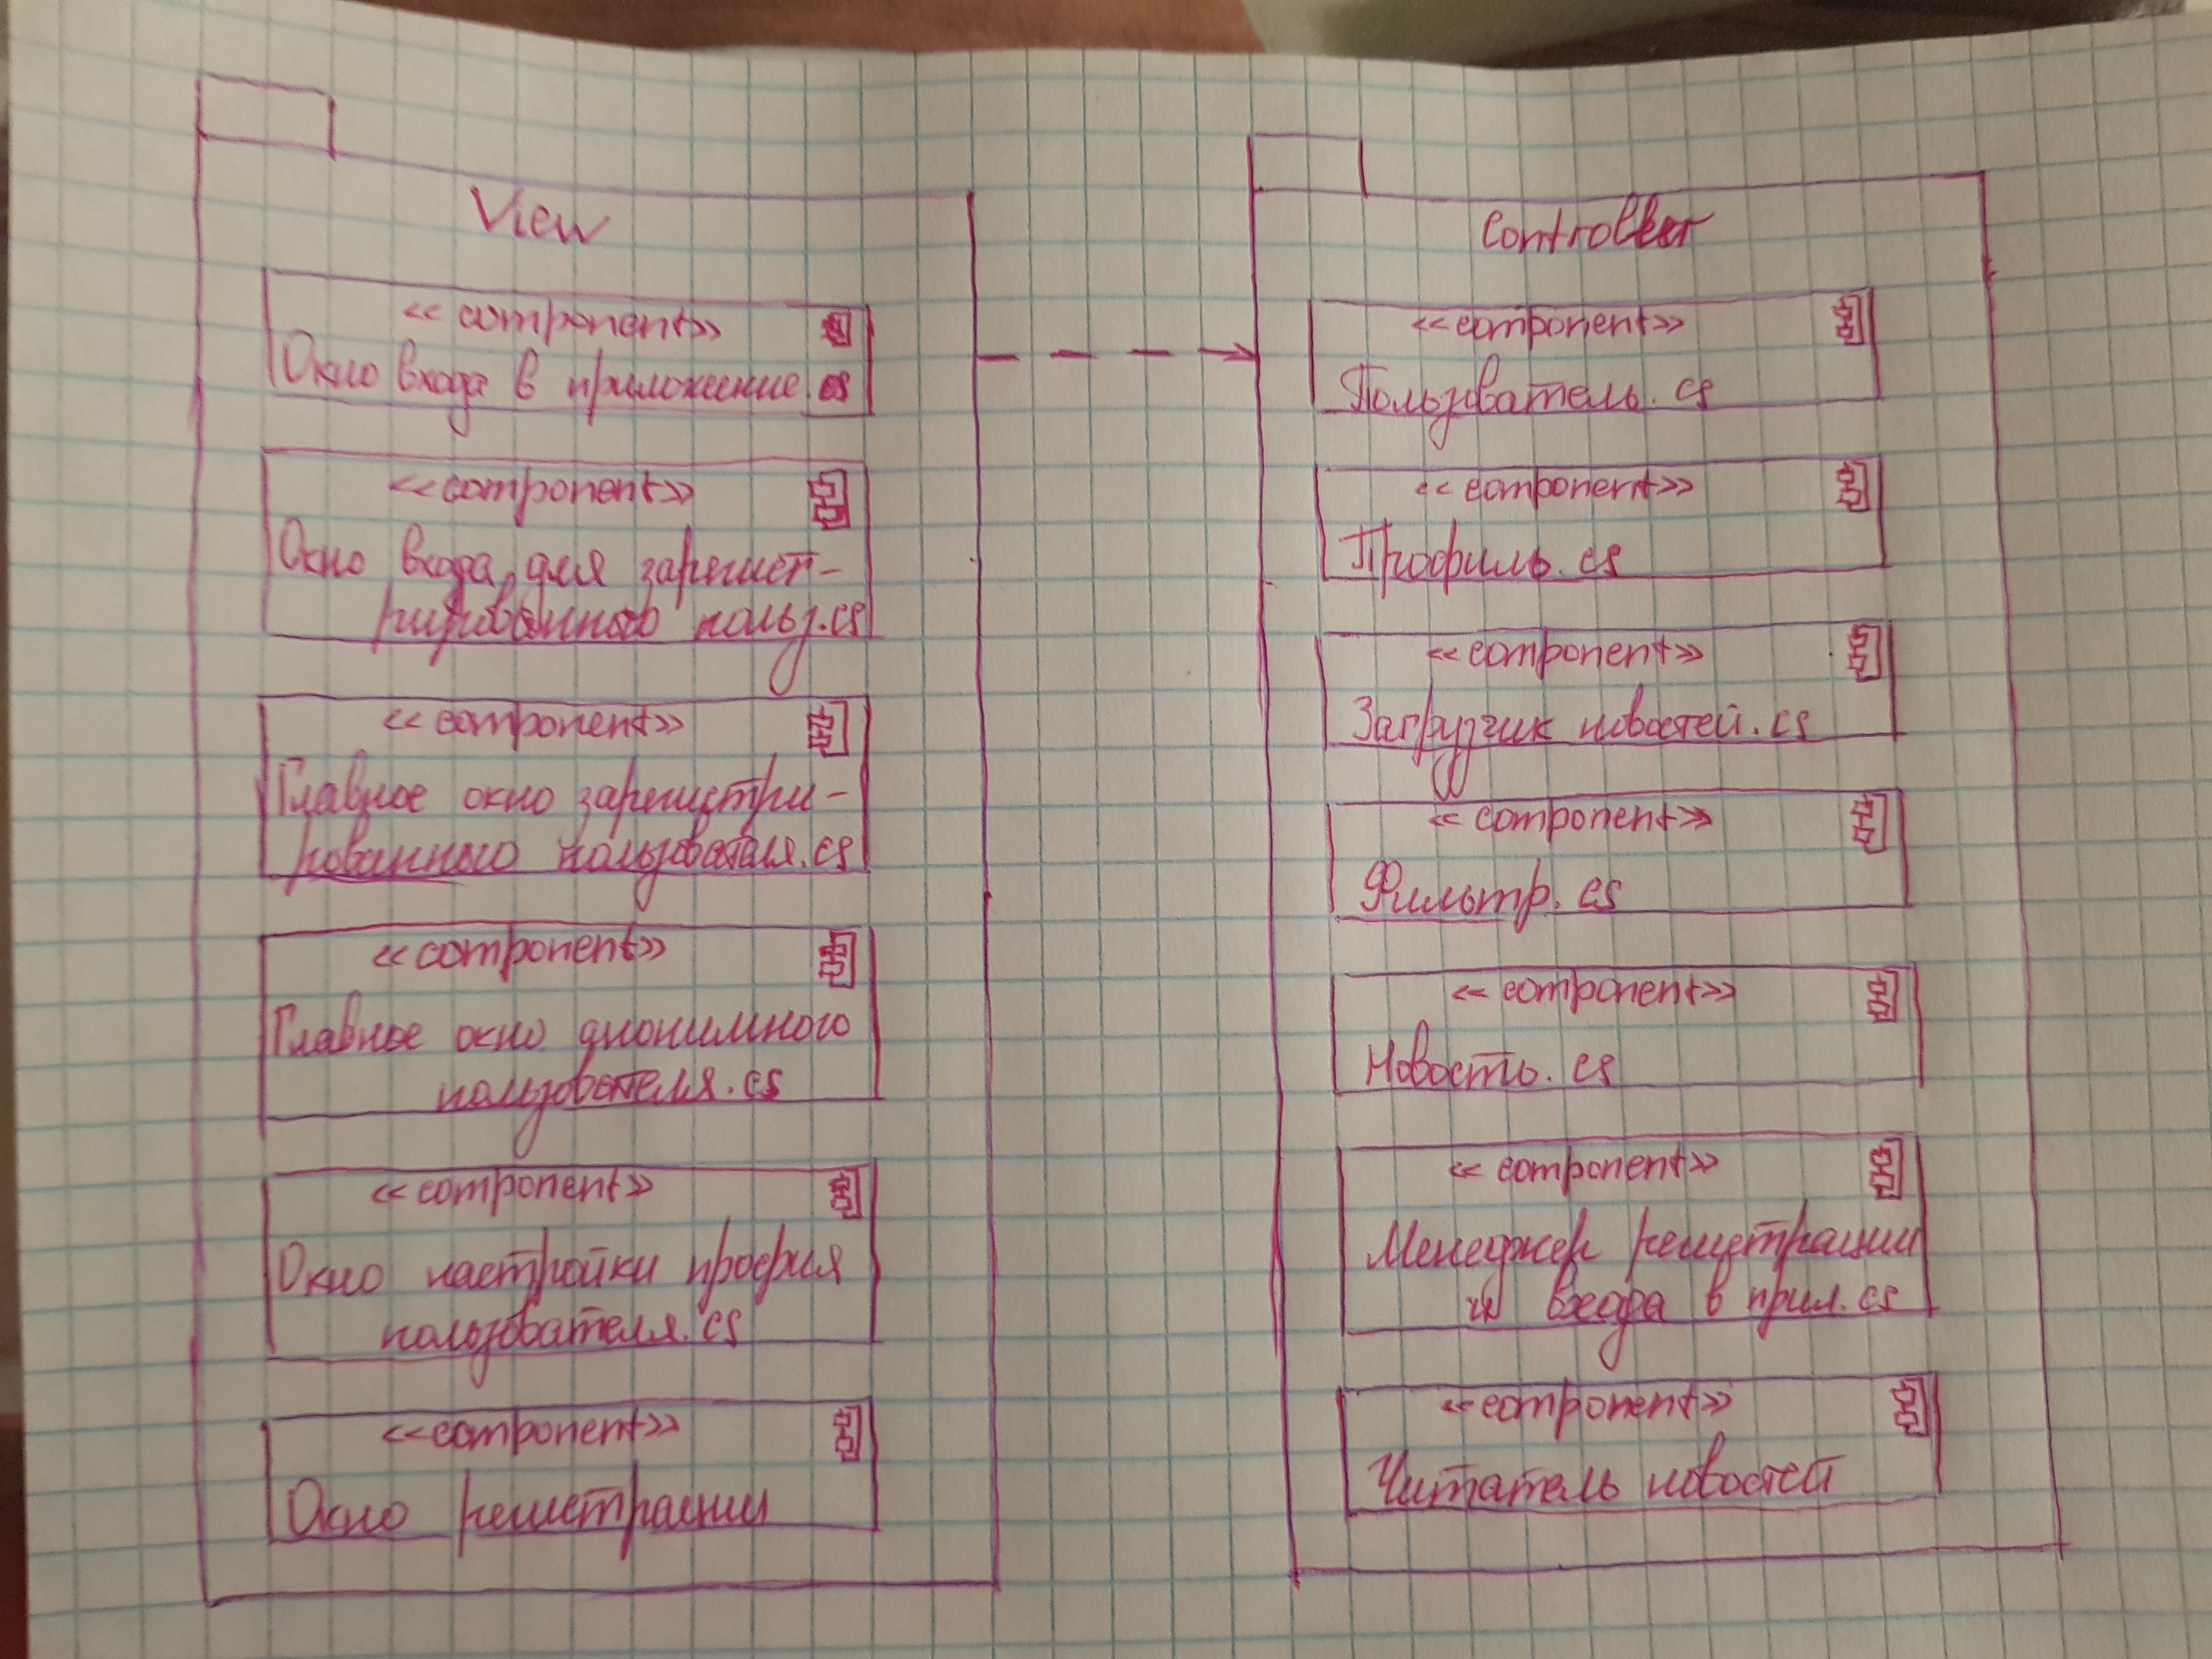 View
<<component>>
Окно входа в приложение.cs
<<component>>
Окно входа для зарегист-
рированного польз.cs
<<component>>
Главное окно зарегистри-
рованного пользователя.cs
<<component>>
Главное окно анонимного
пользователя.cs
<<component>>
Окно настройки профиля
пользователя.cs
<<component>>
Окно регистрации
Controller
<<component>>
Пользователь.cs
<<component>>
Профиль.cs
<<component>>
Загрузчик новостей.cs
<<component>>
Фильтр.cs
<<component>>
Новость.cs
<<component>>
Менеджер регистрации
и входа в прил.cs
<<component>>
Читатель новостей